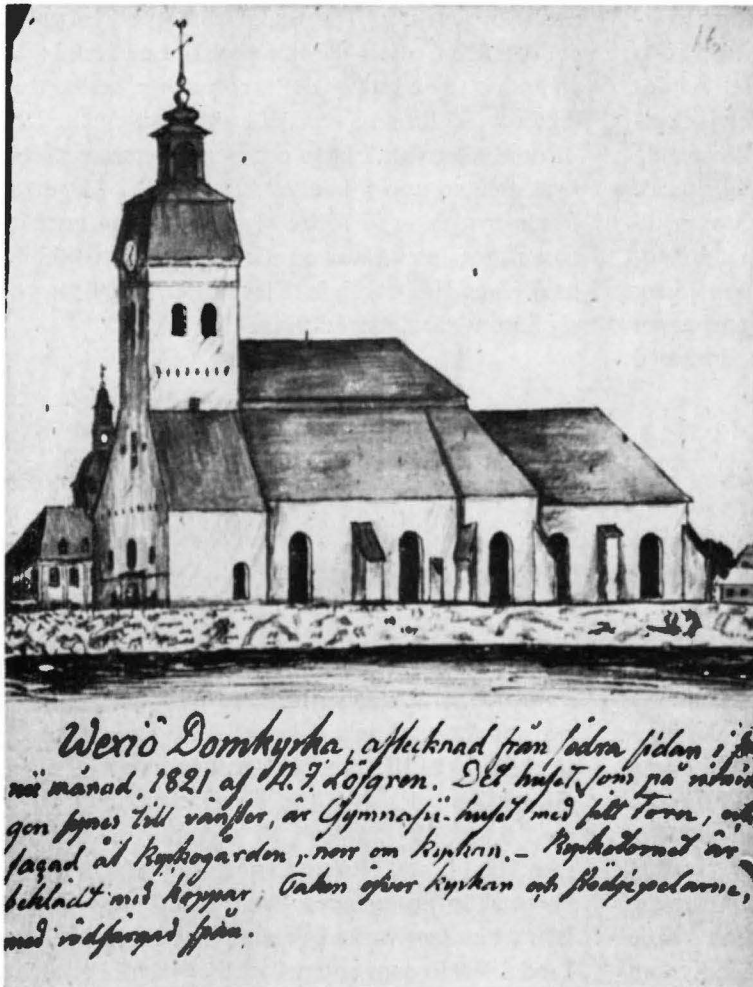 Wexiö Domkyrka, aftecknad från södra sidan i
nii månad, 1821 af A. J. Löfgren. Det huset, som på
gen synes till vänster, är Gymnasii-huset med sitt Torn, och
façad åt Kyrkogården, norr om kyrkan. – Kyrkotornet är
beklädt med koppar. Taken öfver kyrkan och stödjepelarne,
med rödfärgad spån.